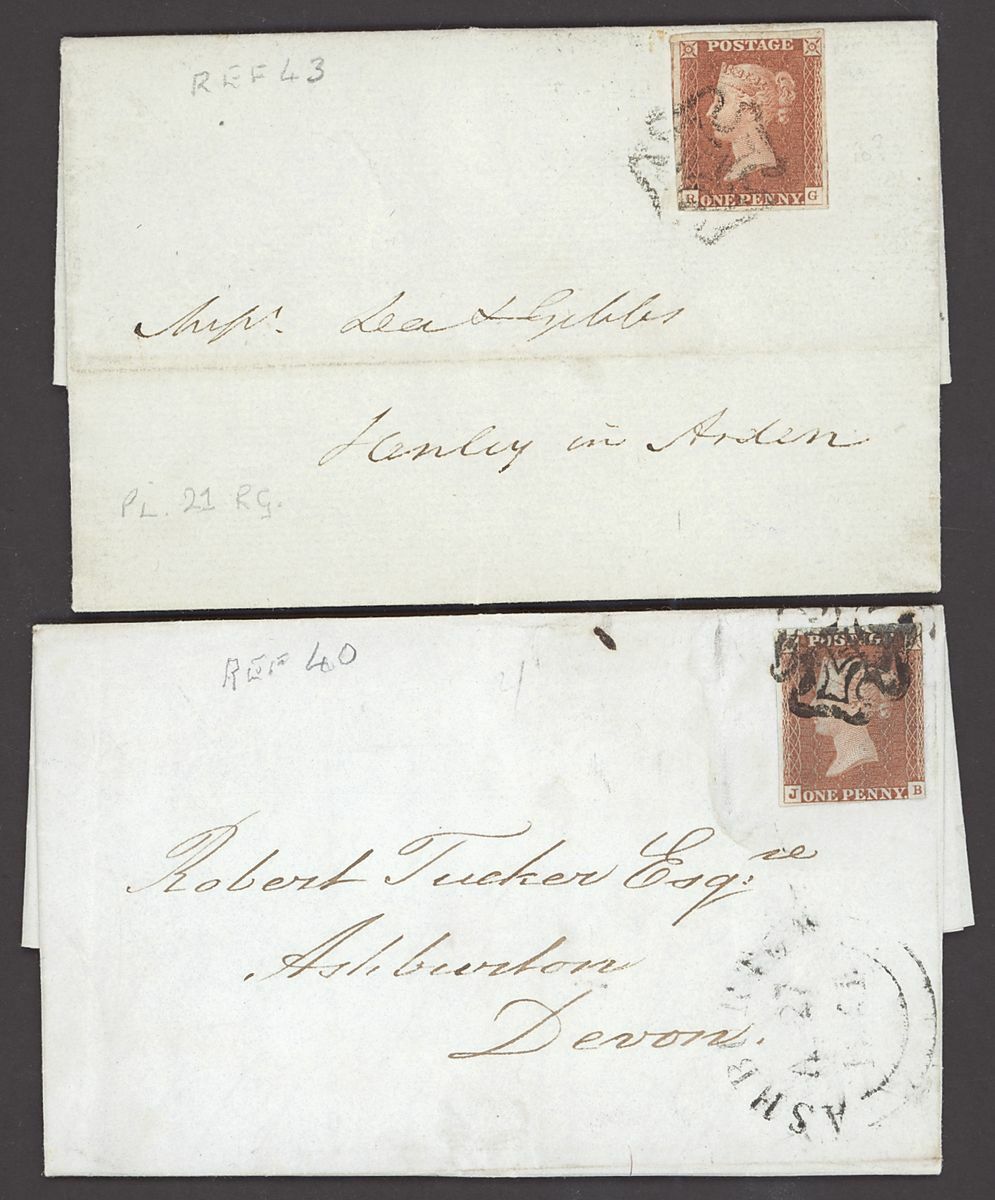 REF 43
POSTAGE
R ONE PENNY. G
Messrs. Lea & Gibbs
Henley in Arden
PL. 21 RG.
REF 40
POSTAGE
J ONE PENNY. B
Robert Tucker Esq:re
Ashburton
Devon.
ASHBURTON
27